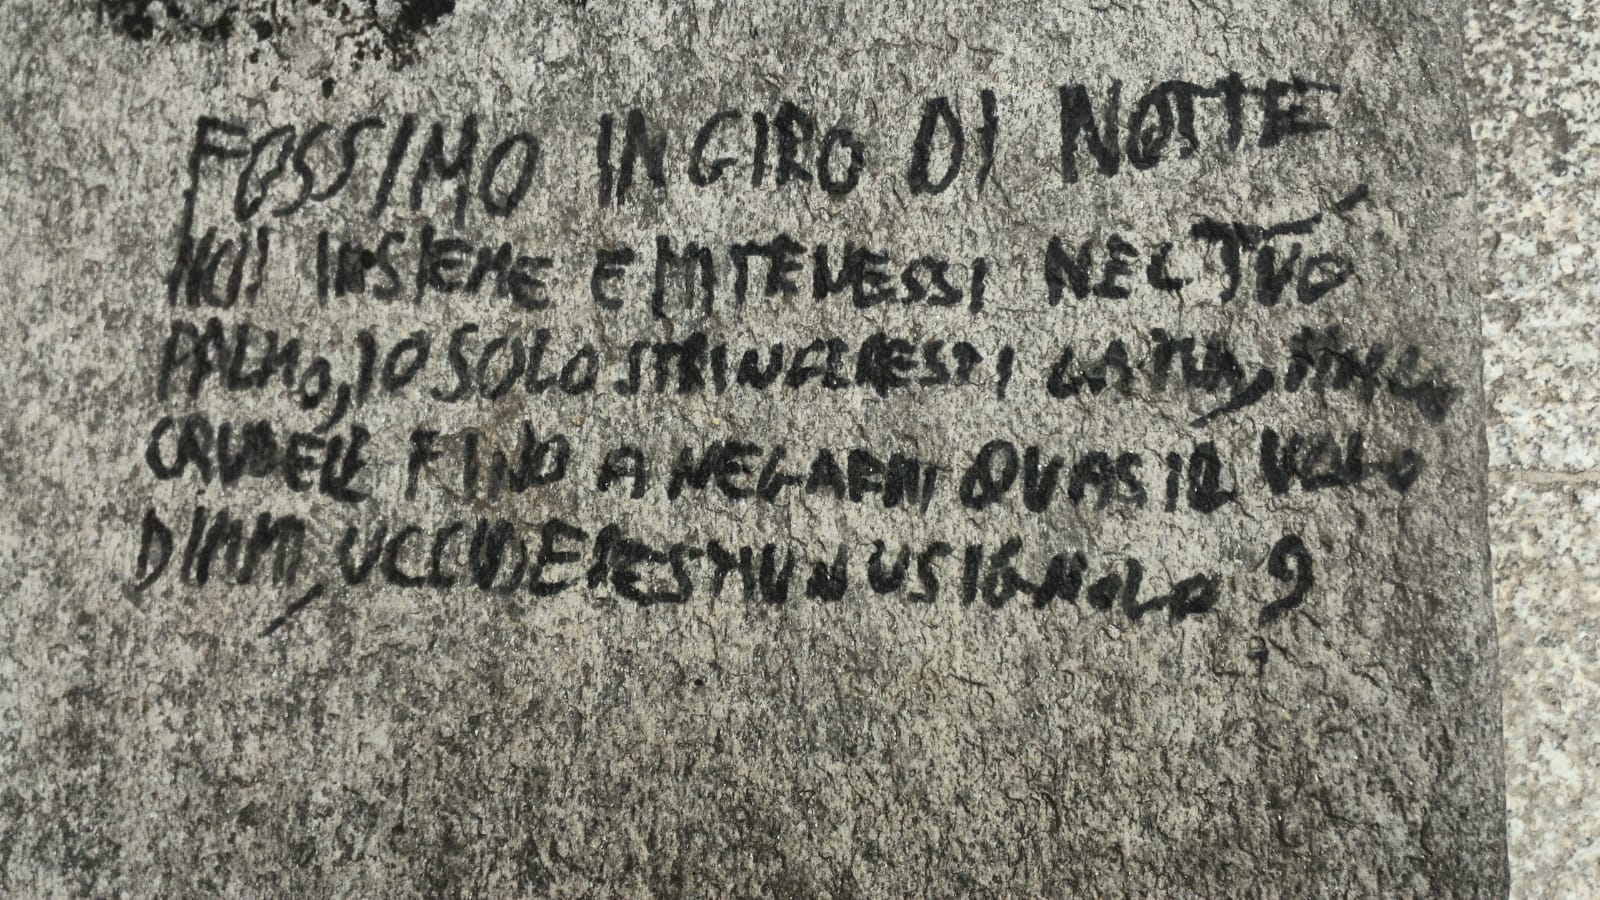 FOSSIMO IN GIRO DI NOTTE
NOI INSIEME E MI TENESSI NEL TUO
PALMO, IO SOLO STRINGERESTI LA MIA,
CRUDELE FINO A NEGARMI QUASI IL VOLO
DIMMI, UCCIDERESTI UN USIGNOLO?